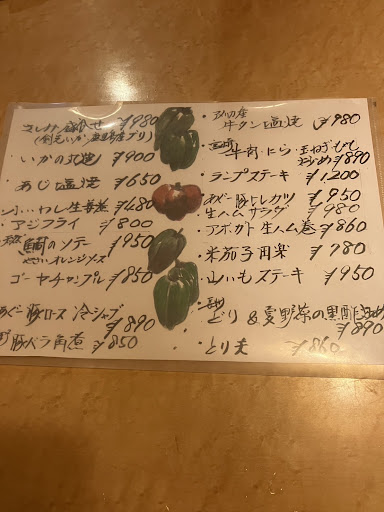 盛合せ ¥980
いかの丸焼 ¥900
あじ塩焼 ¥650
小いわし生姜煮 ¥480
アジフライ ¥800
鯛のソテー ¥950
オレンジソース
ゴーヤチャンプル ¥850
あぐー豚ロース 冷シャブ
¥890
豚バラ角煮 ¥850
牛タン塩焼 ¥980
牛肉・にら・玉ねぎ
¥890
ランプステーキ ¥1200
あぐー豚ヒレカツ ¥950
生ハムサラダ ¥980
アボカド生ハム巻 ¥860
米茄子田楽 ¥780
山いもステーキ ¥950
どり&夏野菜の黒酢
¥890
とり天 ¥860